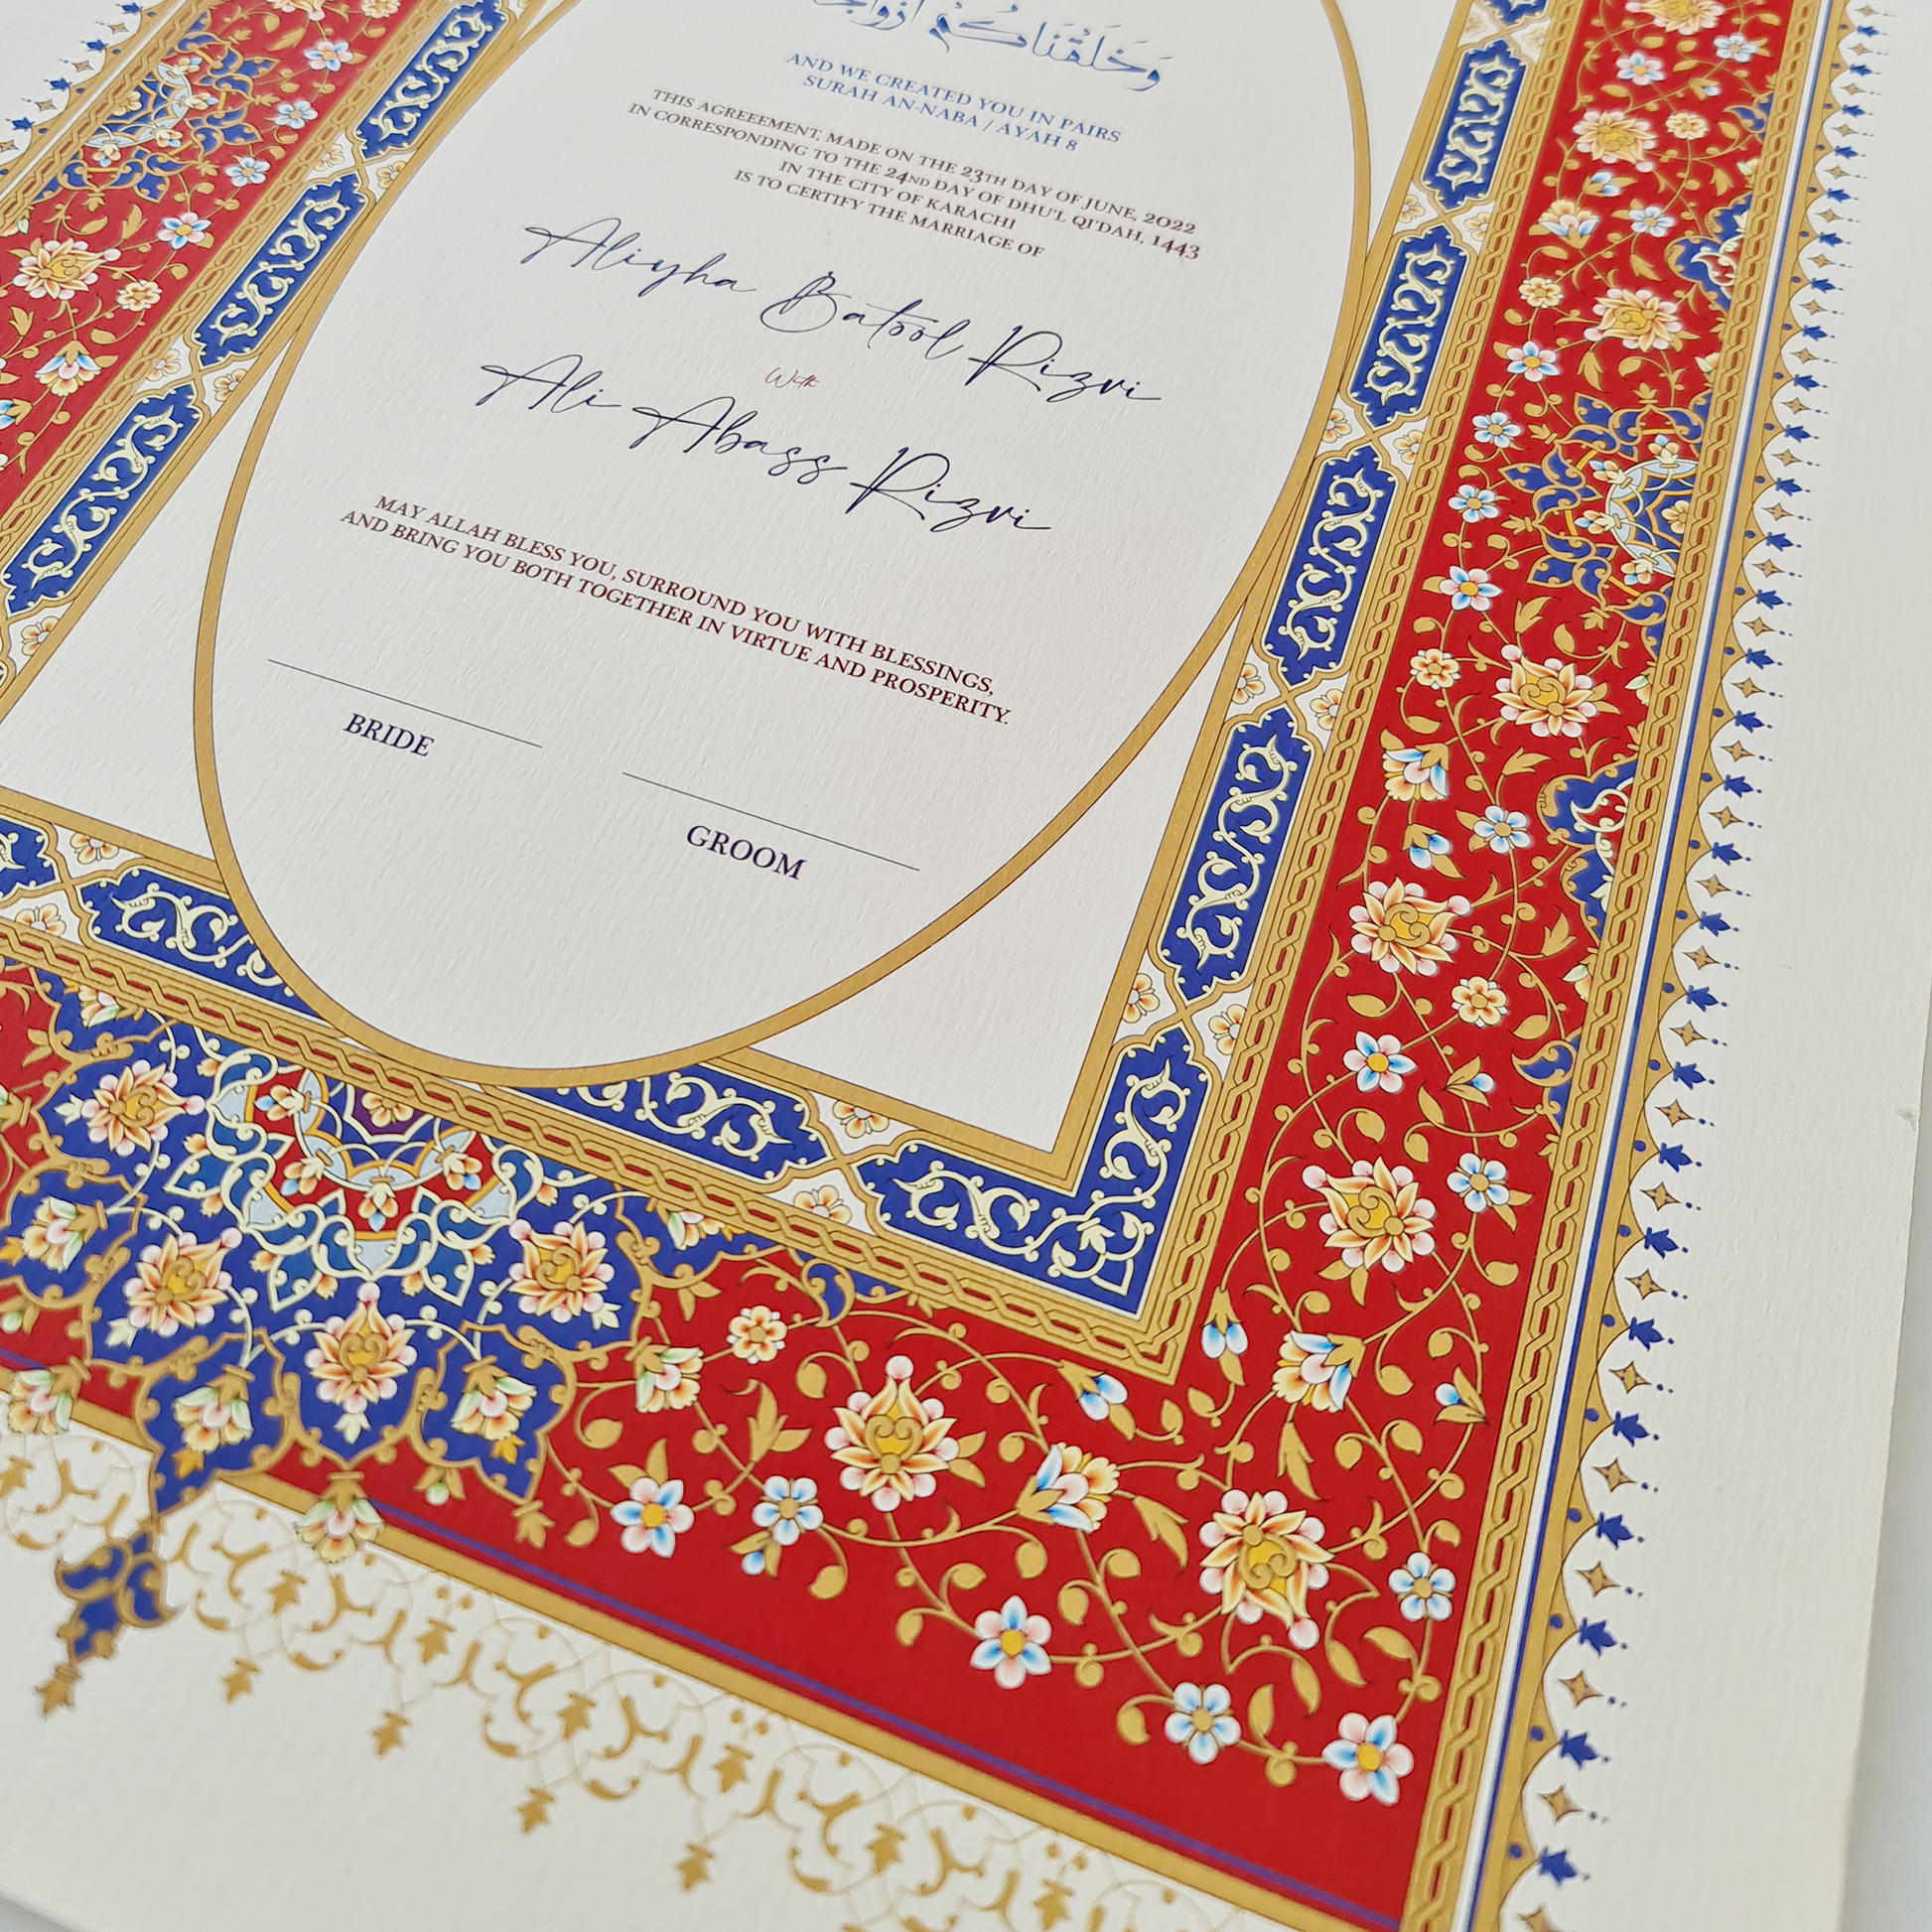 وَخَلَقْنَاكُمْ أَزْوَاجًا
AND WE CREATED YOU IN PAIRS
SURAH AN-NABA / AYAH 8
THIS AGREEEMENT, MADE ON THE 23TH DAY OF JUNE, 2022
IN CORRESPONDING TO THE 24ND DAY OF DHU'L QI'DAH, 1443
IN THE CITY OF KARACHI
IS TO CERTIFY THE MARRIAGE OF
Aliyha Batool Rizvi
With
Ali Abass Rizvi
MAY ALLAH BLESS YOU, SURROUND YOU WITH BLESSINGS,
AND BRING YOU BOTH TOGETHER IN VIRTUE AND PROSPERITY.
BRIDE
GROOM